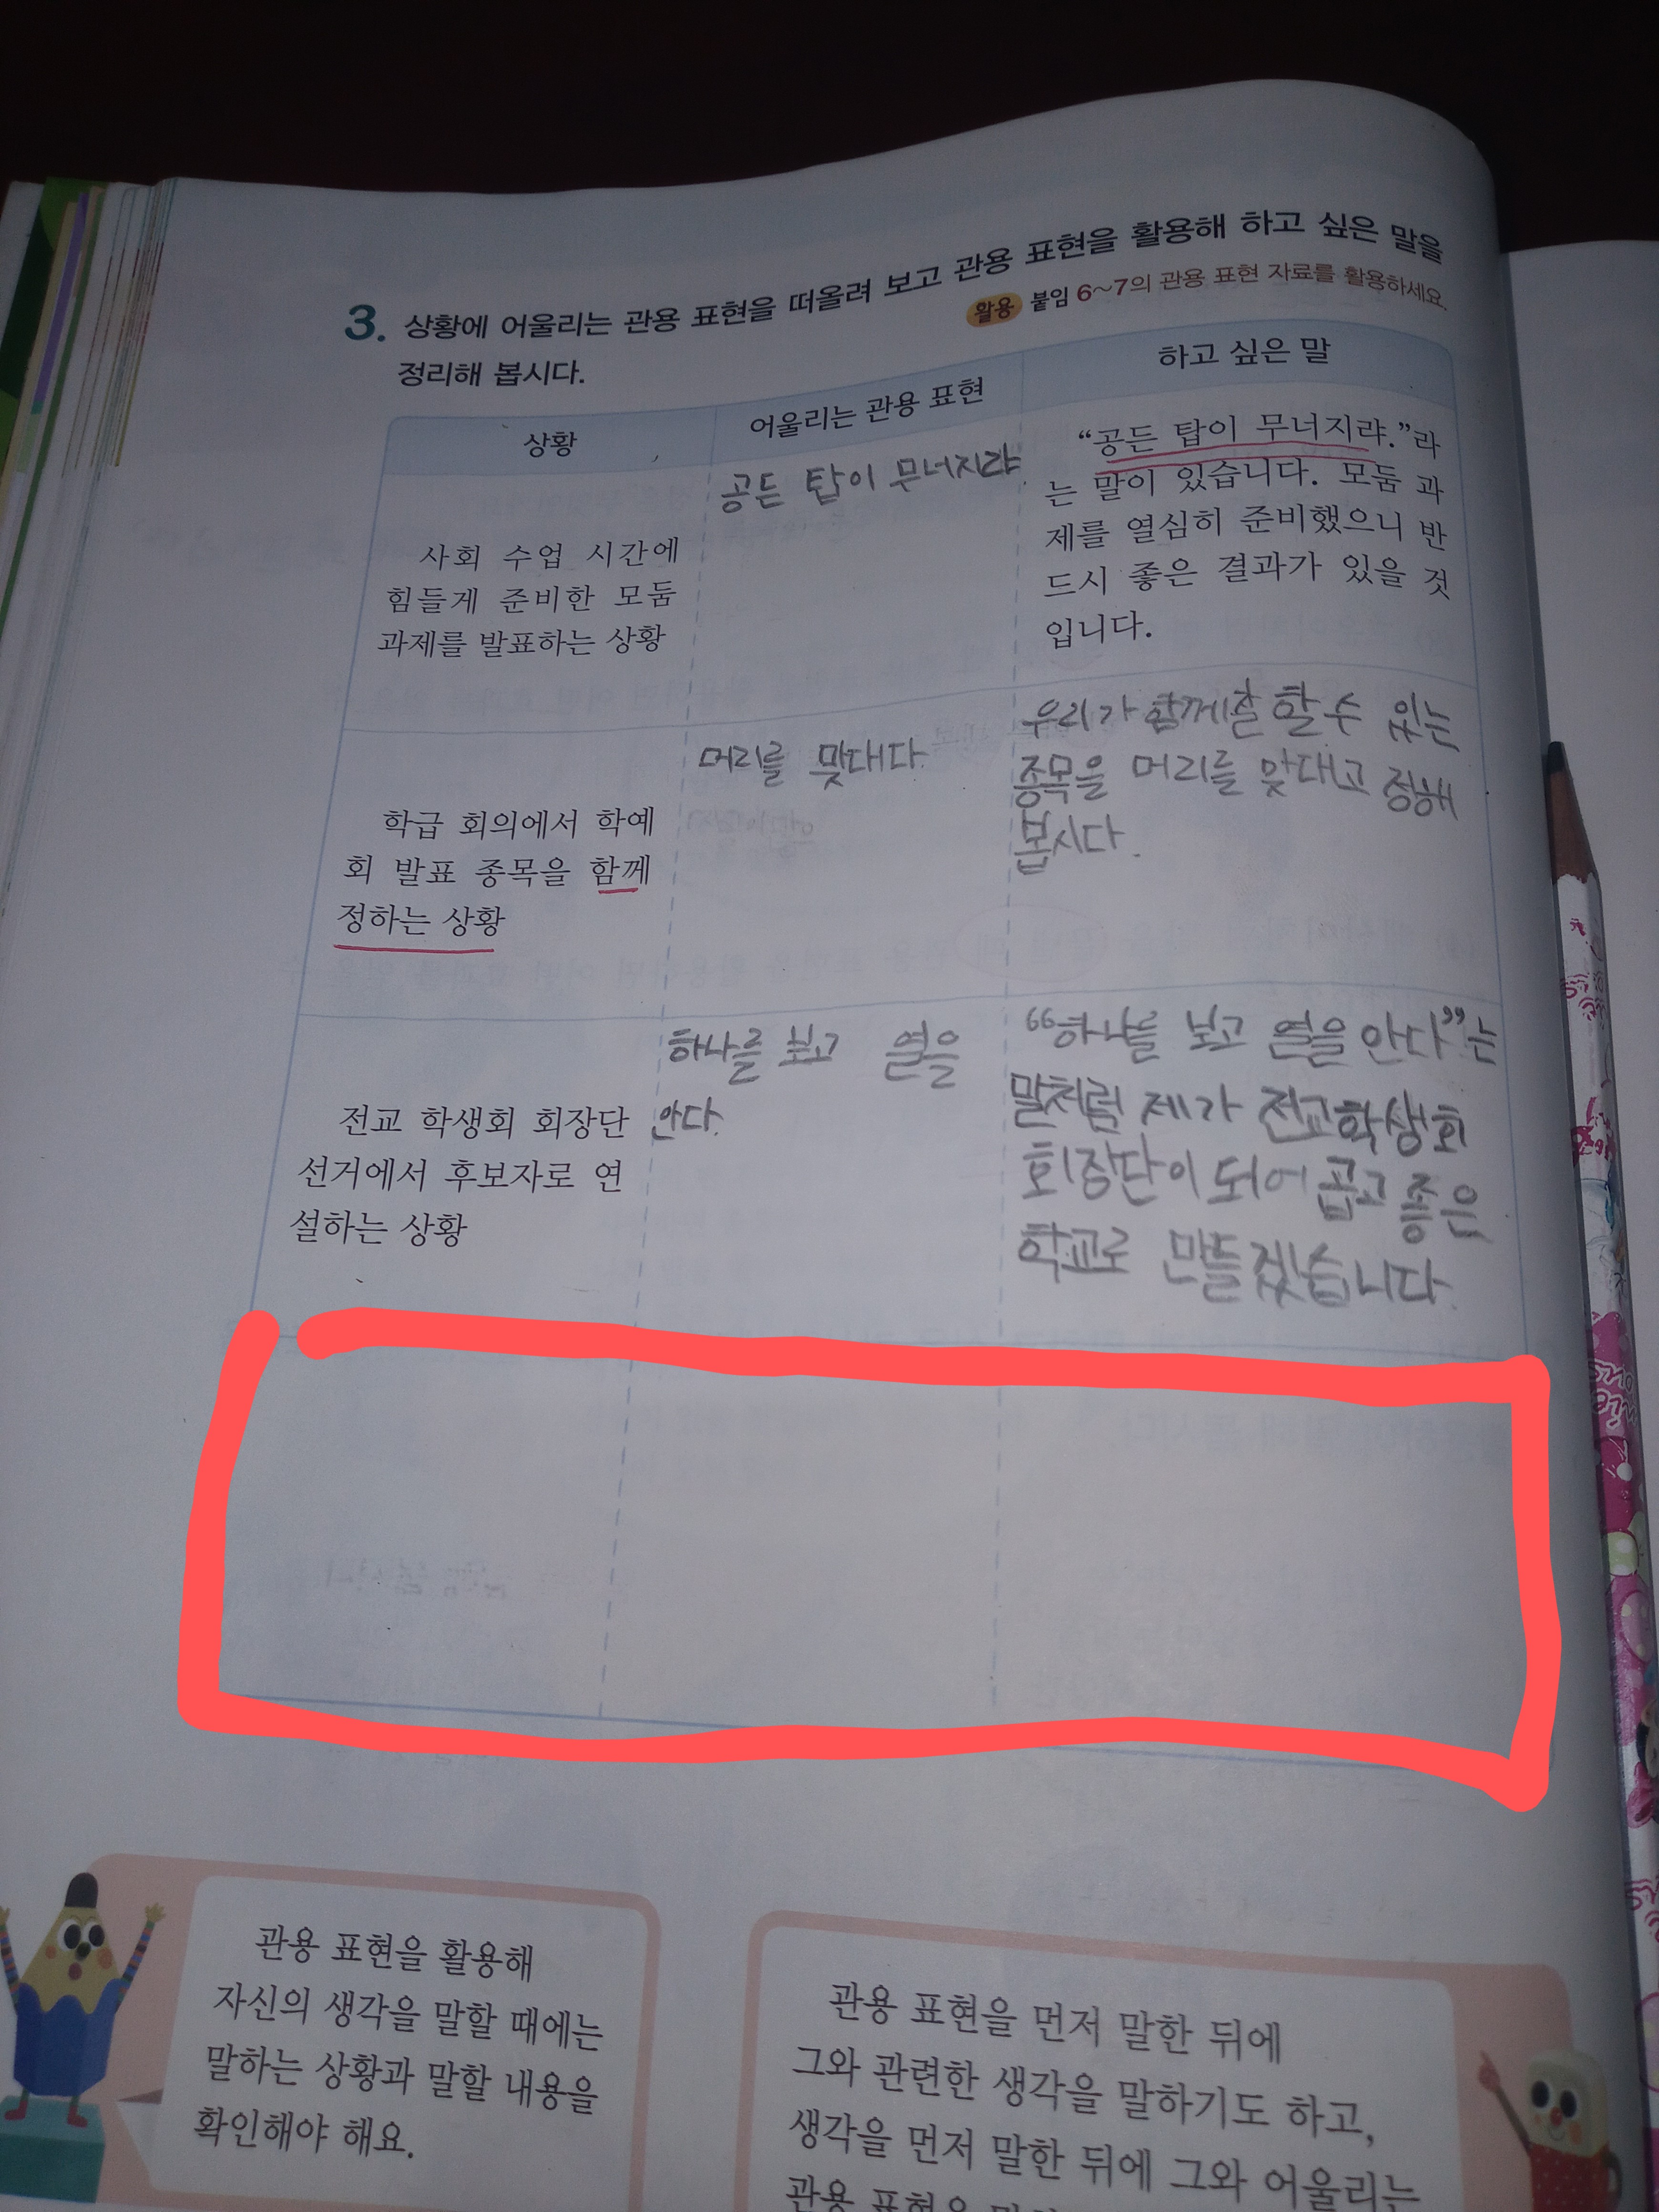 3. 상황에 어울리는 관용 표현을 떠올려 보고 관용 표현을 활용해 하고 싶은 말을
정리해 봅시다.
활용 붙임 6~7의 관용 표현 자료를 활용하세요.
상황
어울리는 관용 표현
하고 싶은 말
사회 수업 시간에
힘들게 준비한 모둠
과제를 발표하는 상황
공든 탑이 무너지랴
“공든 탑이 무너지랴.”라
는 말이 있습니다. 모둠 과
제를 열심히 준비했으니 반
드시 좋은 결과가 있을 것
입니다.
학급 회의에서 학예
회 발표 종목을 함께
정하는 상황
머리를 맞대다
우리가 함께 잘 할 수 있는
종목을 머리를 맞대고 정해
봅시다.
전교 학생회 회장단
선거에서 후보자로 연
설하는 상황
하나를 보고 열을
안다.
“하나를 보고 열을 안다”는
말처럼 제가 전교학생회
회장단이 되어 곱고 좋은
학교로 만들겠습니다.
관용 표현을 활용해
자신의 생각을 말할 때에는
말하는 상황과 말할 내용을
확인해야 해요.
관용 표현을 먼저 말한 뒤에
그와 관련한 생각을 말하기도 하고,
생각을 먼저 말한 뒤에 그와 어울리는
관용 표현을